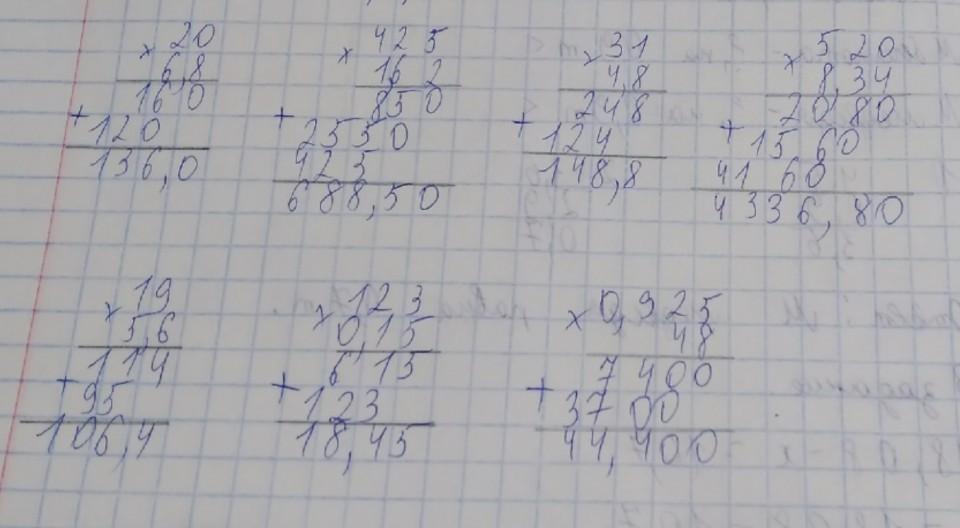 × 20
6,8
160
+ 120
136,0
× 425
162
850
+ 2550
425
688,50
× 31
4,8
248
+ 124
148,8
× 520
8,34
2080
+ 1560
4160
4336,80
× 19
5,6
114
+ 95
106,4
× 123
0,15
615
+ 123
18,45
× 0,925
48
7400
+ 3700
44,400